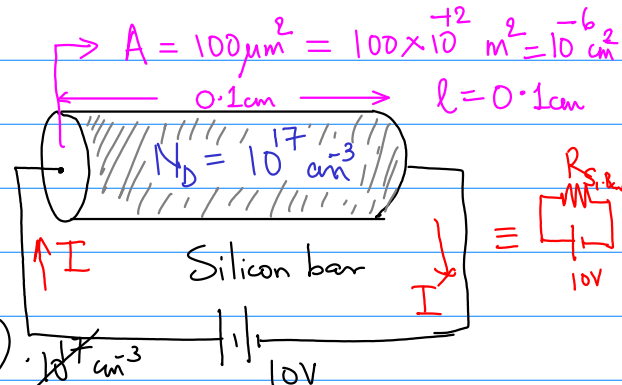 A = 100μm² = 100×10⁻¹² m² = 10⁻⁶ cm²
0.1cm l = 0.1cm
N_D = 10¹⁷ cm⁻³
R_Si
≡
I Silicon bar I 10V
cm⁻³ 10V